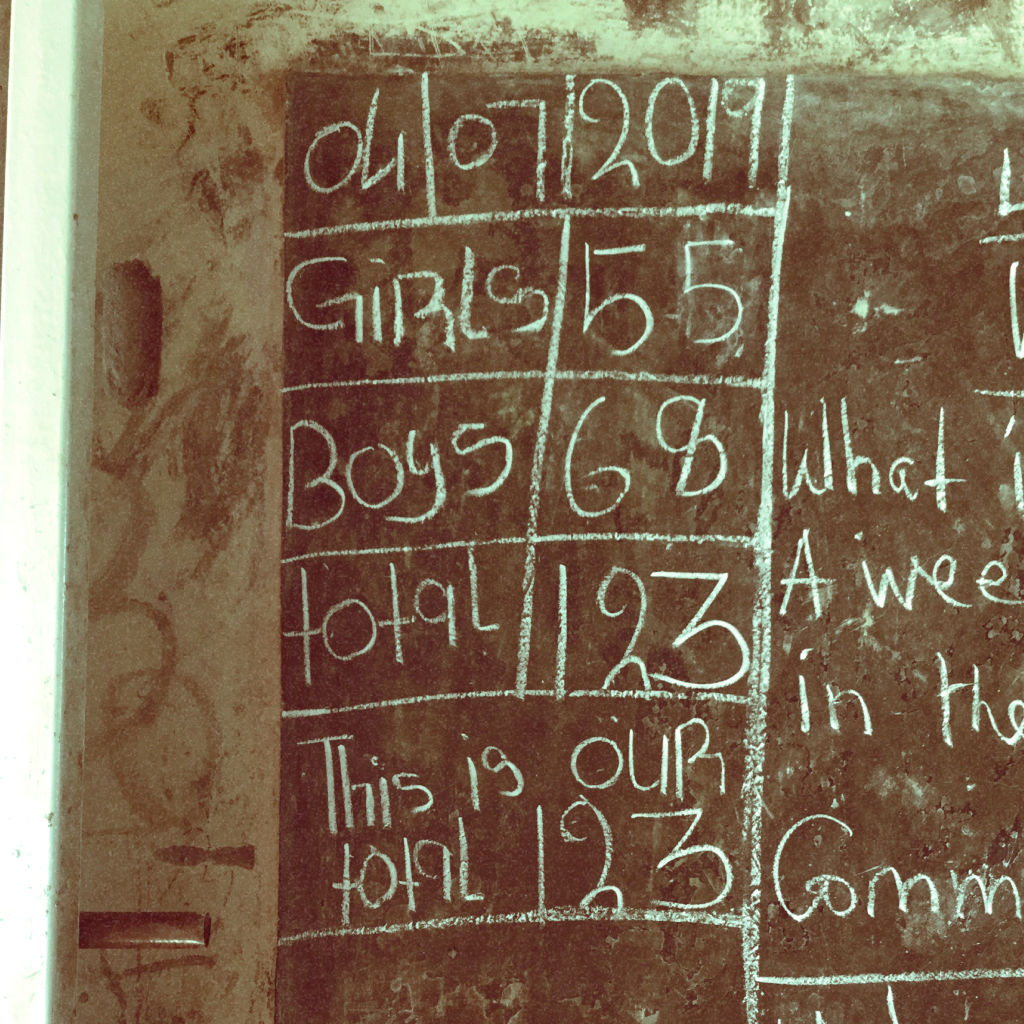 04/07/2019
Girls 55
Boys 68
total 123
This is OUR
total 123
What
A wee
in the
Comm